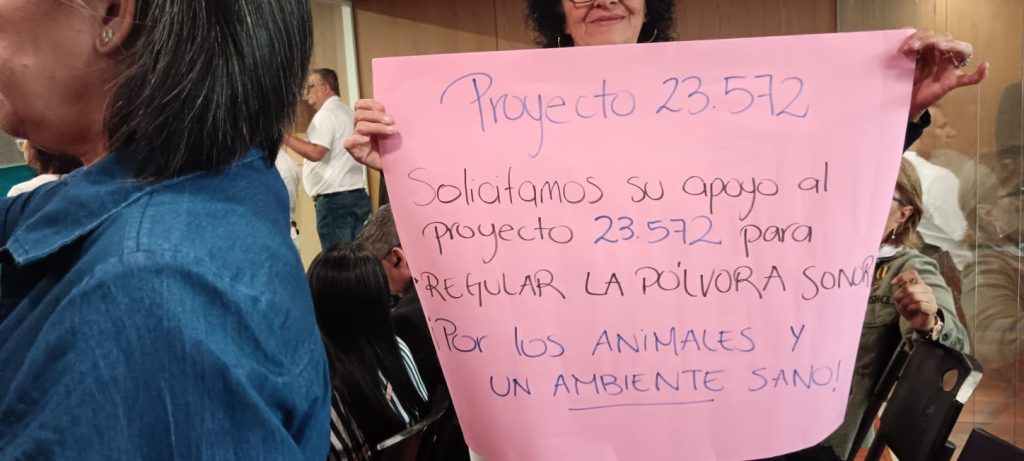 Proyecto 23.572
Solicitamos su apoyo al
proyecto 23.572 para
REGULAR LA PÓLVORA SONOR
¡Por los ANIMALES Y
UN AMBIENTE SANO!